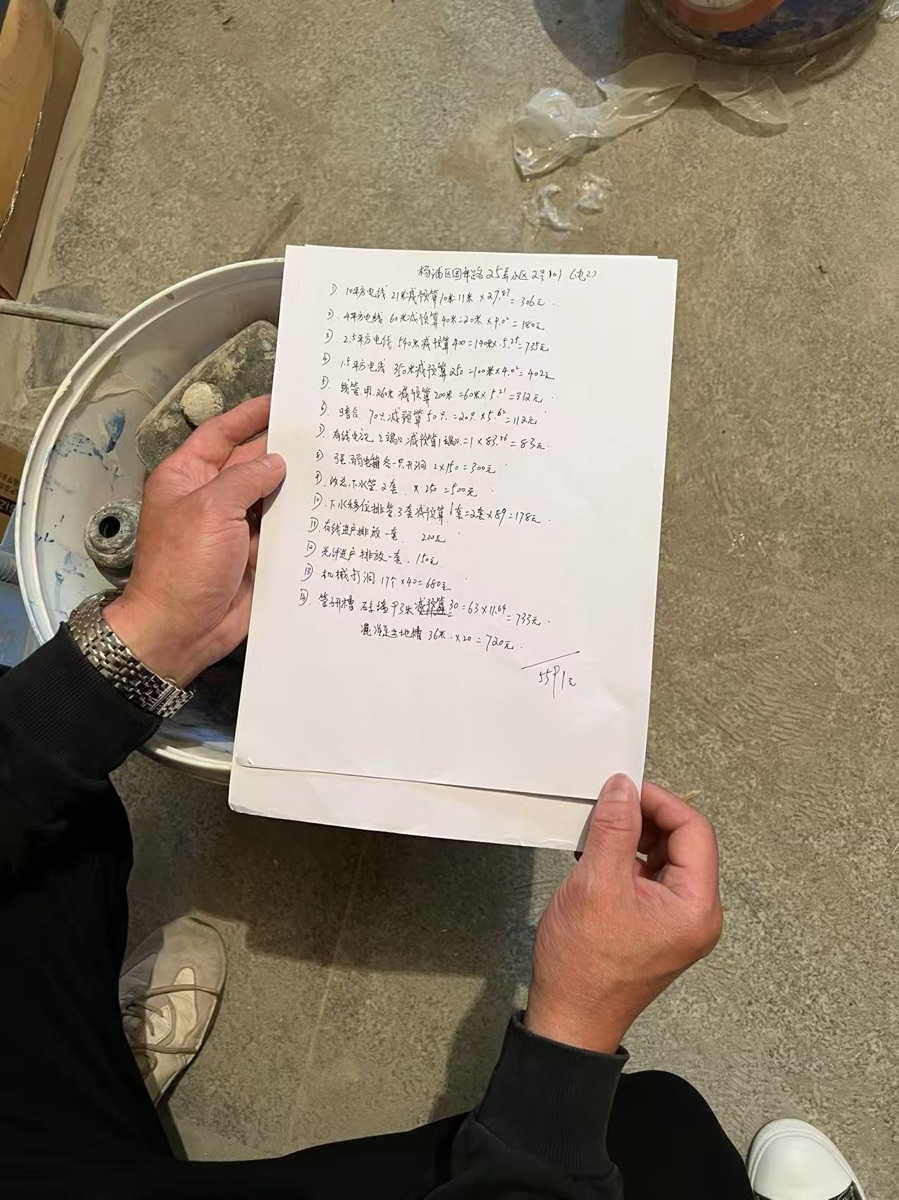 杨浦区国年路25弄小区2号101 (电工)
① 10平方电线 21米减预算10米 11米 ×27.87 = 306元
② 4平方电线 60米减预算40米=20米 ×9.0 = 180元
③ 2.5平方电线 540米减预算400=140米×5.25=735元
④ 1.5平方电线 350米减预算250=100米×4.02=402元
⑤ 线管用260米减预算200米=60米×5.21=312元
⑥ 暗合 70只减预算50只=20只×5.60=112元
⑦ 有线电视 2端口减预算1端口=1×83.26=83元
⑧ 强.弱电箱各一只开洞 2×150=300元
⑨ 下水管.2套 ×250=500元
⑩ 下水移位排管.3套减预算1套=2套×89=178元
⑪ 有线进户排放一套 200元
⑫ 光纤进户排放一套.150元
⑬ 机械打洞 17个×40=680元
⑭ 管子开槽 砖墙93米减预算30=63×11.64=733元
混凝土地槽 36米.×20=720元
5591元